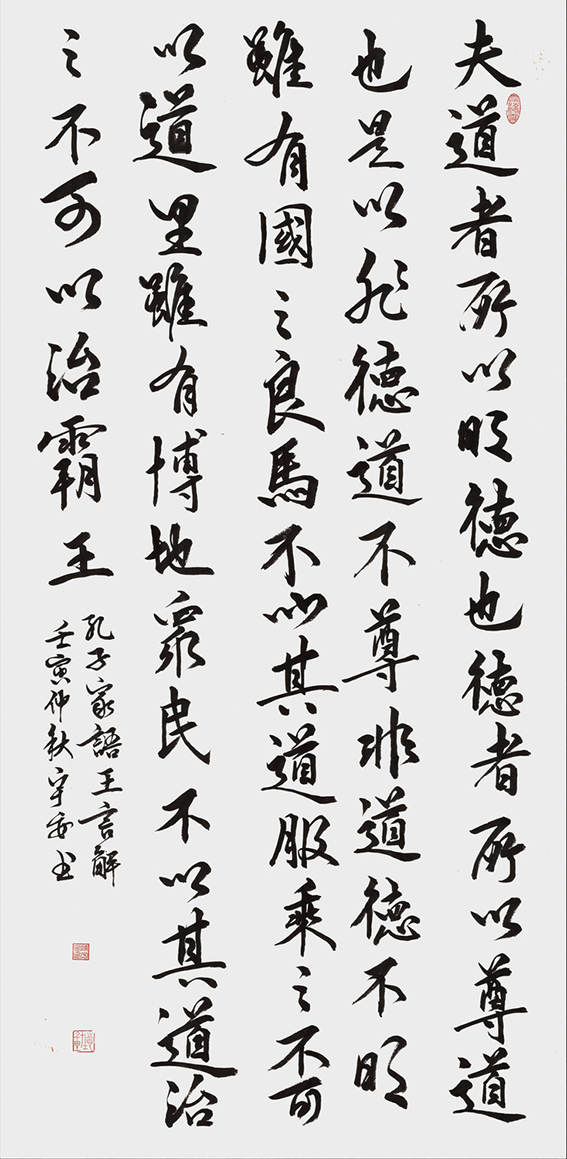 夫道者所以明德也德者所以尊道
也是以非德道不尊非道德不明
雖有國之良馬不以其道服乘之不可
以道里雖有博地眾民不以其道治
之不可以治霸王
孔子家語王言解
壬寅仲秋宇安书